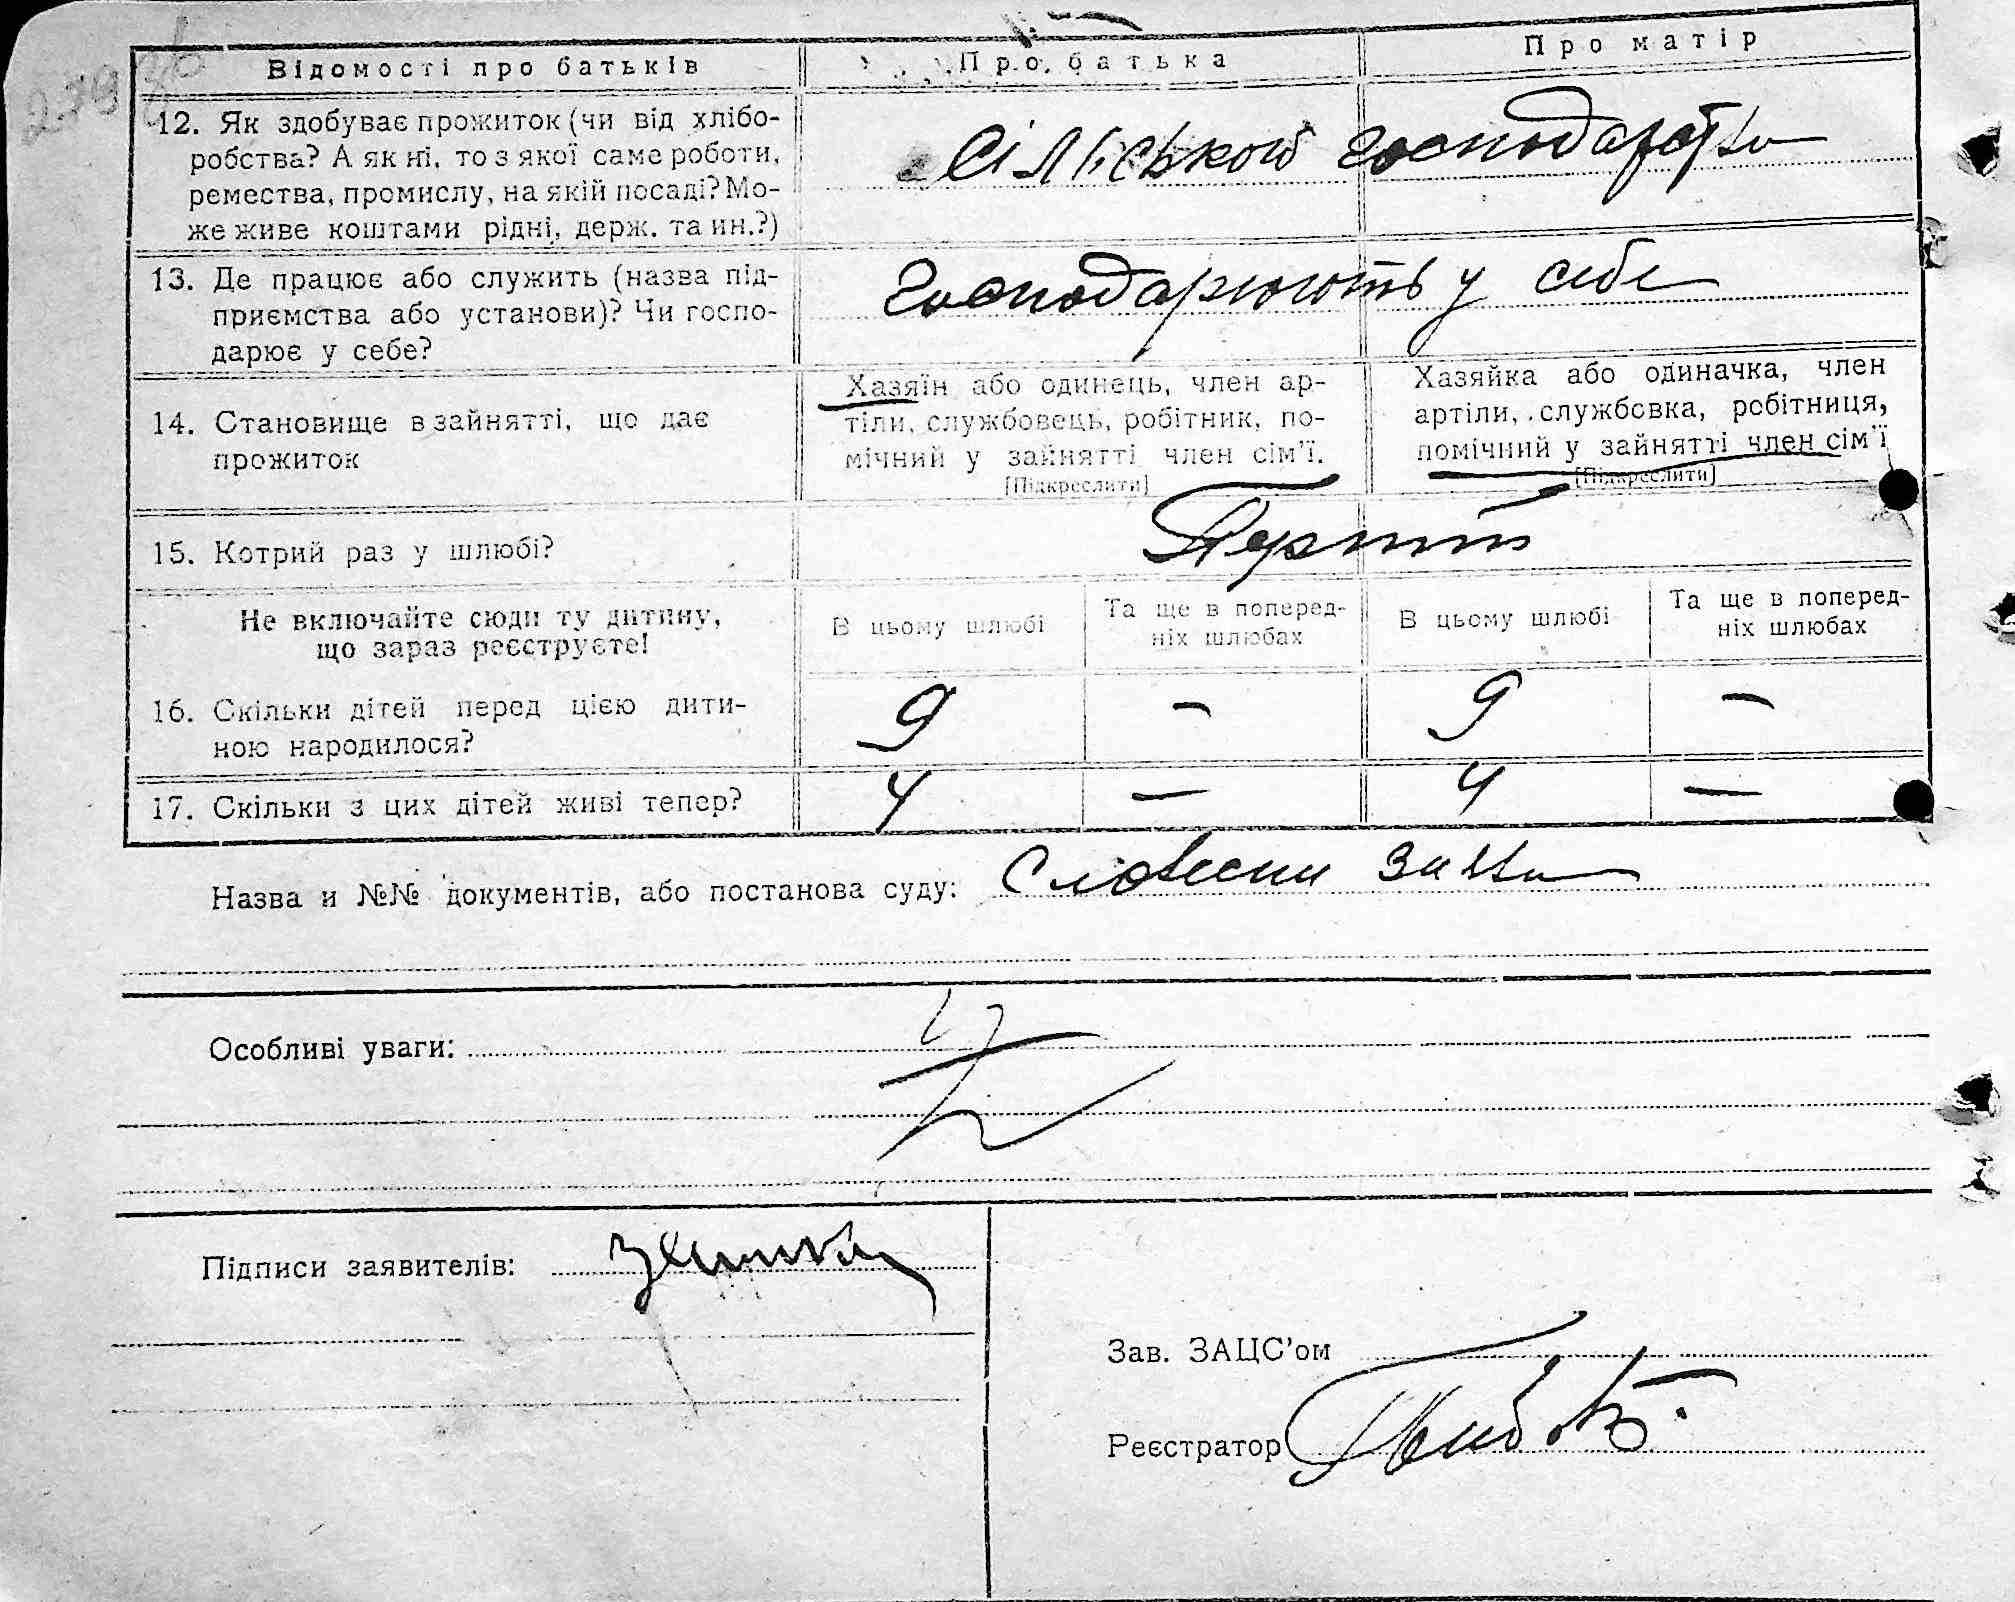 Відомості про батьків
Про батька
Про матір
12. Як здобуває прожиток (чи від хлібо-
робства? А як ні, то з якої саме роботи,
ремества, промислу, на якій посаді? Мо-
же живе коштами рідні, держ. та ин.?)
Сільської господарства
13. Де працює або служить (назва під-
приємства або установи)? Чи госпо-
дарює у себе?
Господарюють у себе
14. Становище в зайнятті, що дає
прожиток
Хазяїн або одинець, член ар-
тіли, службовець, робітник, по-
мічний у зайнятті член сім'ї.
[Підкреслити]
Хазяйка або одиначка, член
артіли, службовка, робітниця,
помічний у зайнятті член сім'ї
[Підкреслити]
15. Котрий раз у шлюбі?
Не включайте сюди ту дитину,
що зараз реєструєте!
В цьому шлюбі
Та ще в поперед-
ніх шлюбах
В цьому шлюбі
Та ще в поперед-
ніх шлюбах
16. Скільки дітей перед цією дити-
ною народилося?
9 — 9 —
17. Скільки з цих дітей живі тепер?
4 — 4 —
Назва и №№ документів, або постанова суду: Словесни
Особливі уваги:
Підписи заявителів:
Зав. ЗАЦС'ом
Реєстратор